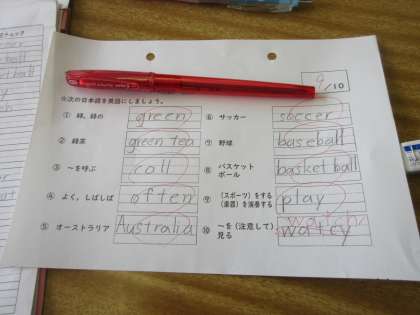 9/10
※次の日本語を英語にしましょう。
① 緑、緑の green
② 緑茶 green tea
③ ～を呼ぶ call
④ よく、しばしば often
⑤ オーストラリア Australia
⑥ サッカー soccer
⑦ 野球 baseball
⑧ バスケットボール basket ball
⑨ (スポーツ)をする (楽器)を演奏する play
⑩ ～を(注意して)見る